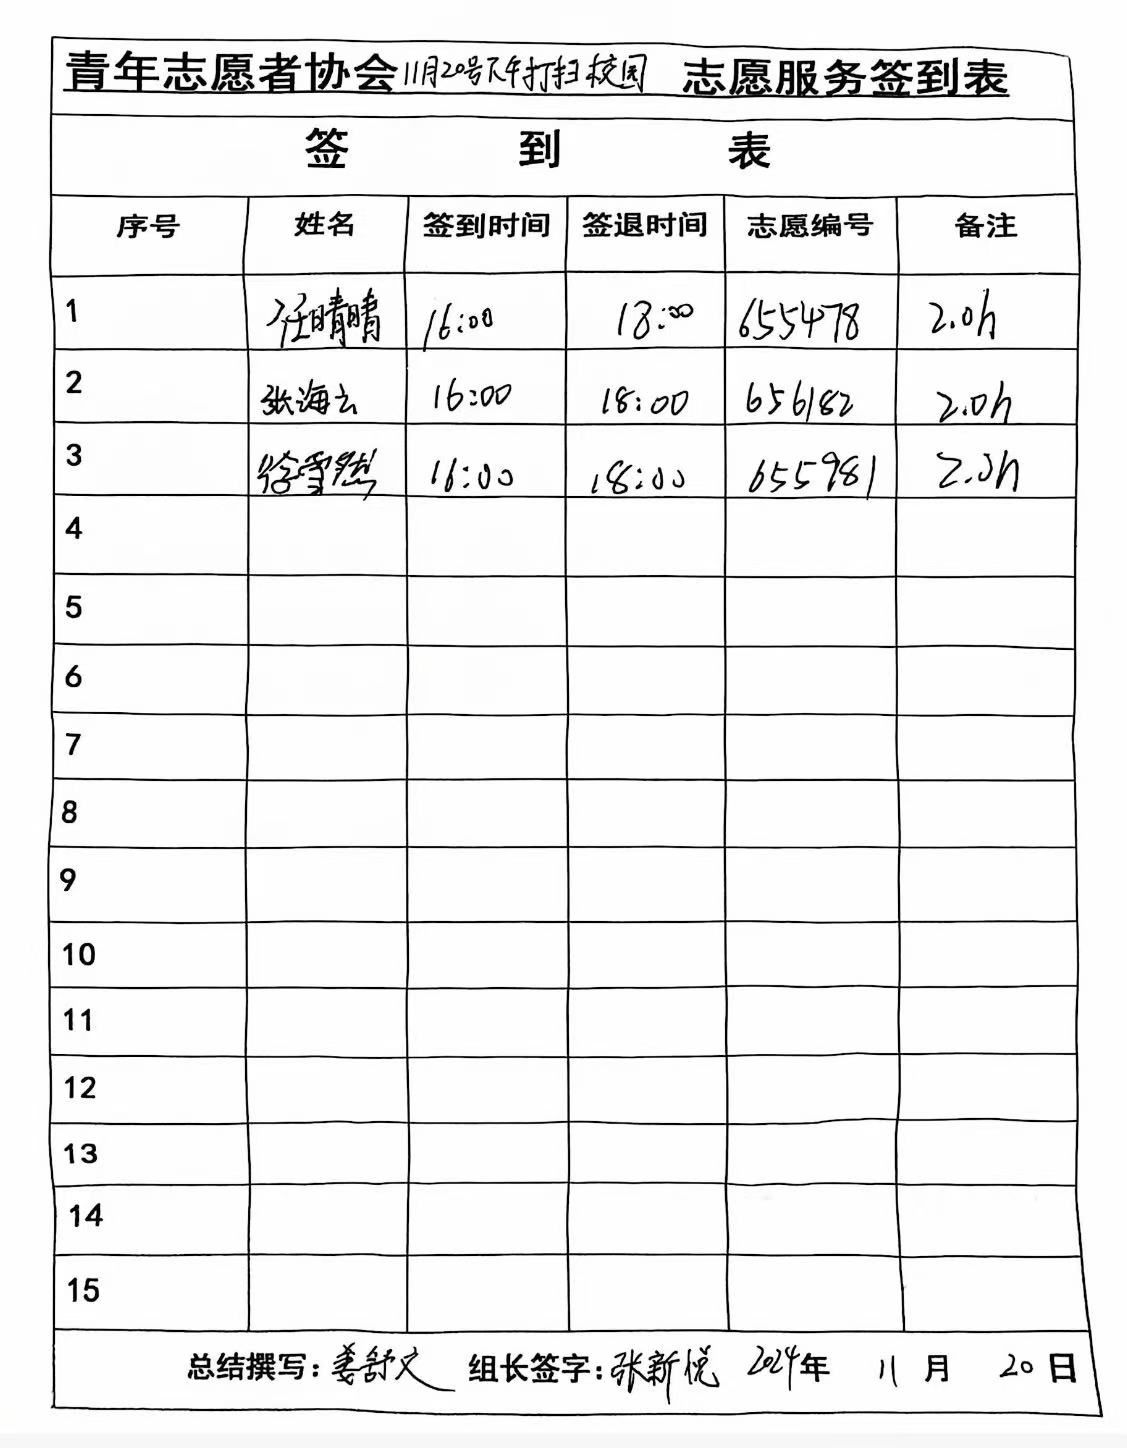 青年志愿者协会11月20号下午打扫校园 志愿服务签到表
签 到 表
序号 姓名 签到时间 签退时间 志愿编号 备注
1 任晴晴 16:00 18:00 655478 2.0h
2 张海云 16:00 18:00 656182 2.0h
3 徐雪然 16:00 18:00 655981 2.0h
4
5
6
7
8
9
10
11
12
13
14
15
总结撰写:姜舒文 组长签字:张新悦 2024年 11月 20日